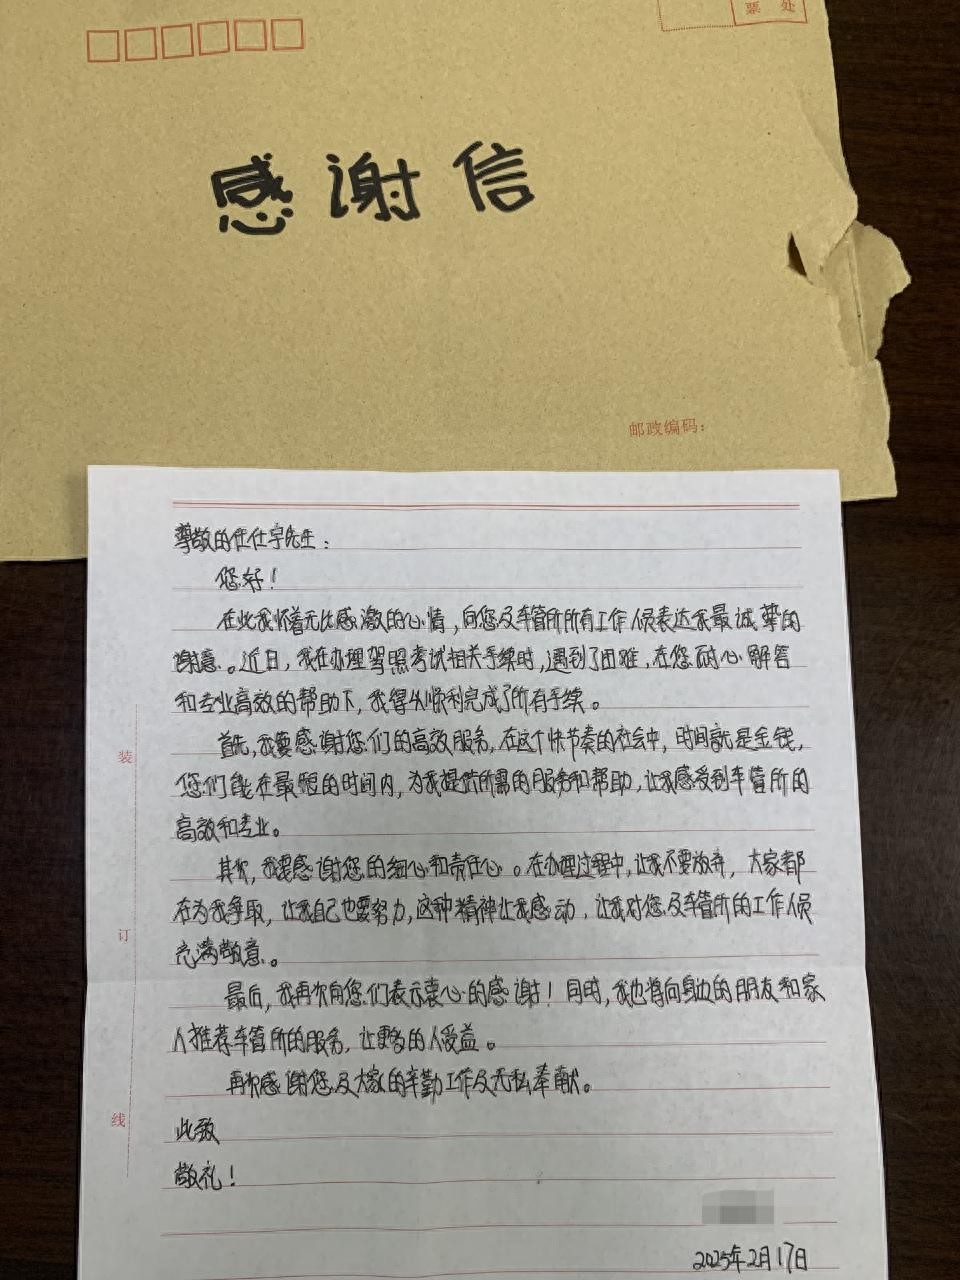 票 处
感谢信
邮政编码：
尊敬的任仕宇先生：
您好！
在此我怀着无比感激的心情，向您及车管所所有工作人员表达我最诚挚的
谢意。近日，我在办理驾照考试相关手续时，遇到了困难，在您耐心解答
和专业高效的帮助下，我得以顺利完成了所有手续。
首先，我要感谢您们的高效服务，在这个快节奏的社会中，时间就是金钱，
您们能在最短的时间内，为我提供所需的服务和帮助，让我感受到车管所的
高效和专业。
其次，我要感谢您的细心和责任心。在办理过程中，让我不要放弃，大家都
在为我争取，让我自己也要努力，这种精神让我感动，让我对您及车管所的工作人员
充满敬意。
最后，我再次向您们表示衷心的感谢！同时，我也将向身边的朋友和家
人推荐车管所的服务，让更多的人受益。
再次感谢您及大家的辛勤工作及无私奉献。
此致
敬礼！
2025年2月17日
装
订
线